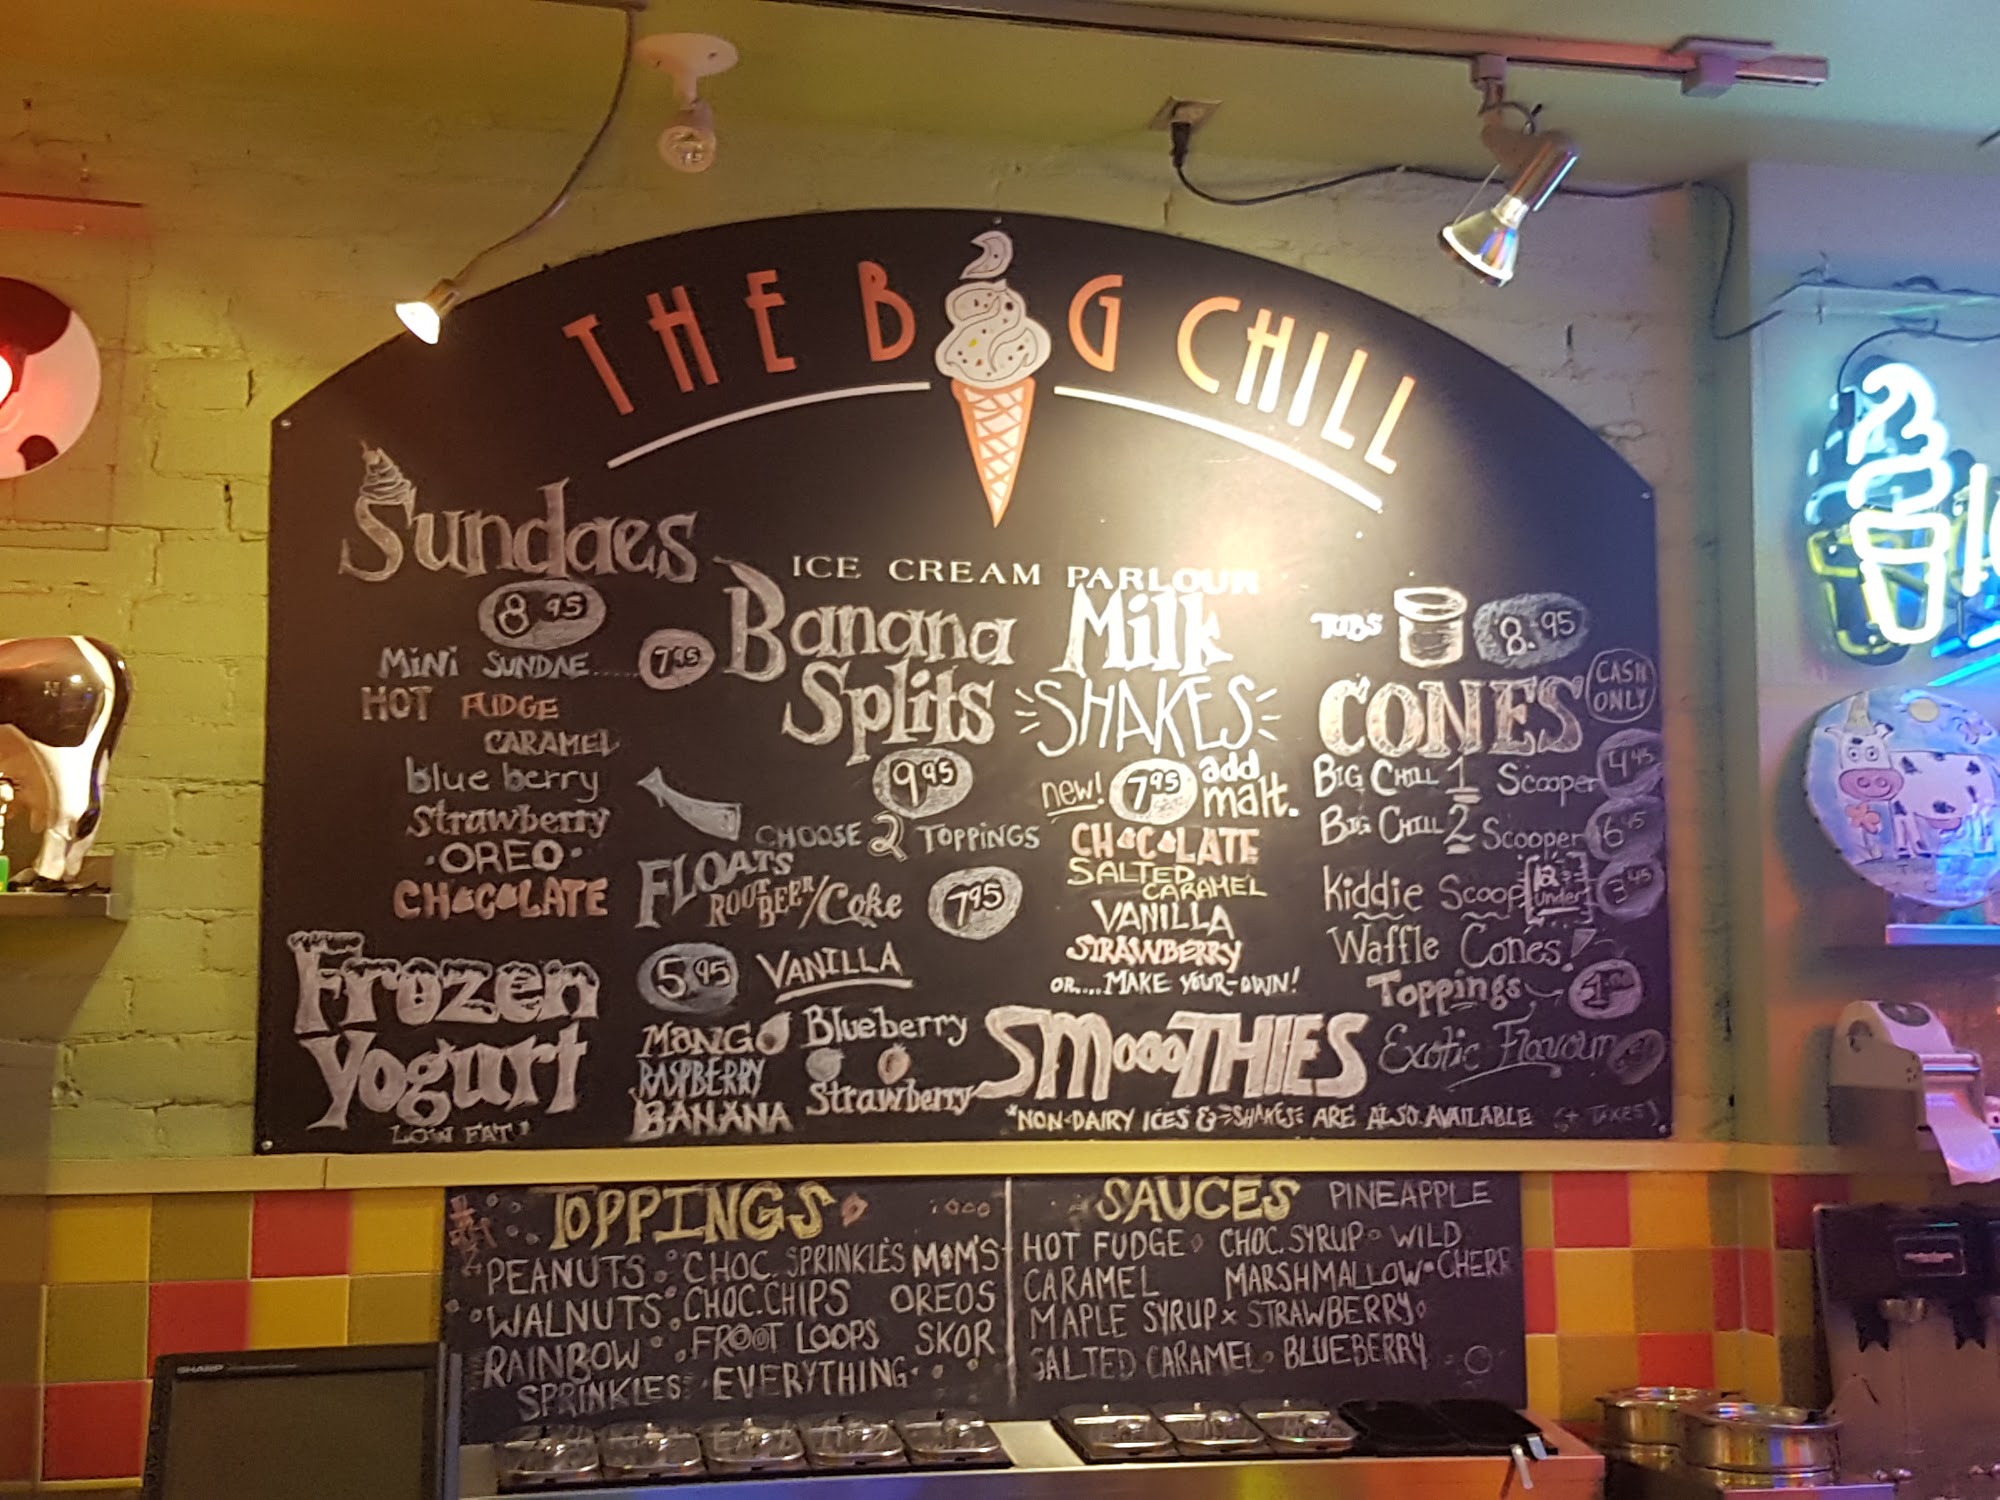 THE BIG CHILL
ICE CREAM PARLOUR
Sundaes
8.95
MiNi SUNDAE...... 7.95
HOT FUDGE
CARAMEL
blue berry
Strawberry
·OREO·
CHOCOLATE
Banana
Splits
9.95
CHOOSE 2 TOPPINGS
FLOATS
ROOT BEER/Coke 7.95
Milk
SHAKES
new! 7.95 add malt.
CHOCOLATE
SALTED
CARAMEL
VANILLA
STRAWBERRY
OR....MAKE YOUR-OWN!
TUBS 8.95
CONES
CASH
ONLY
BIG CHILL 1 Scooper 4.45
BIG CHILL 2 Scooper 6.45
Kiddie Scoop 12 under 3.45
Waffle Cones!
Toppings 1.00
Exotic Flavour
Frozen
Yogurt
LOW FAT!
5.95 VANILLA
MANGO Blueberry
RASPBERRY
BANANA Strawberry
SMOOOTHIES
*NON-DAIRY ICES & SHAKES ARE ALSO AVAILABLE (+ TAXES)
TOPPINGS
PEANUTS CHOC. SPRINKLES M&M'S
WALNUTS CHOC.CHIPS OREOS
RAINBOW FROOT LOOPS SKOR
SPRINKLES EVERYTHING
SAUCES PINEAPPLE
HOT FUDGE CHOC. SYRUP WILD
CARAMEL MARSHMALLOW CHERR
MAPLE SYRUP STRAWBERRY
SALTED CARAMEL BLUEBERRY
SHARP